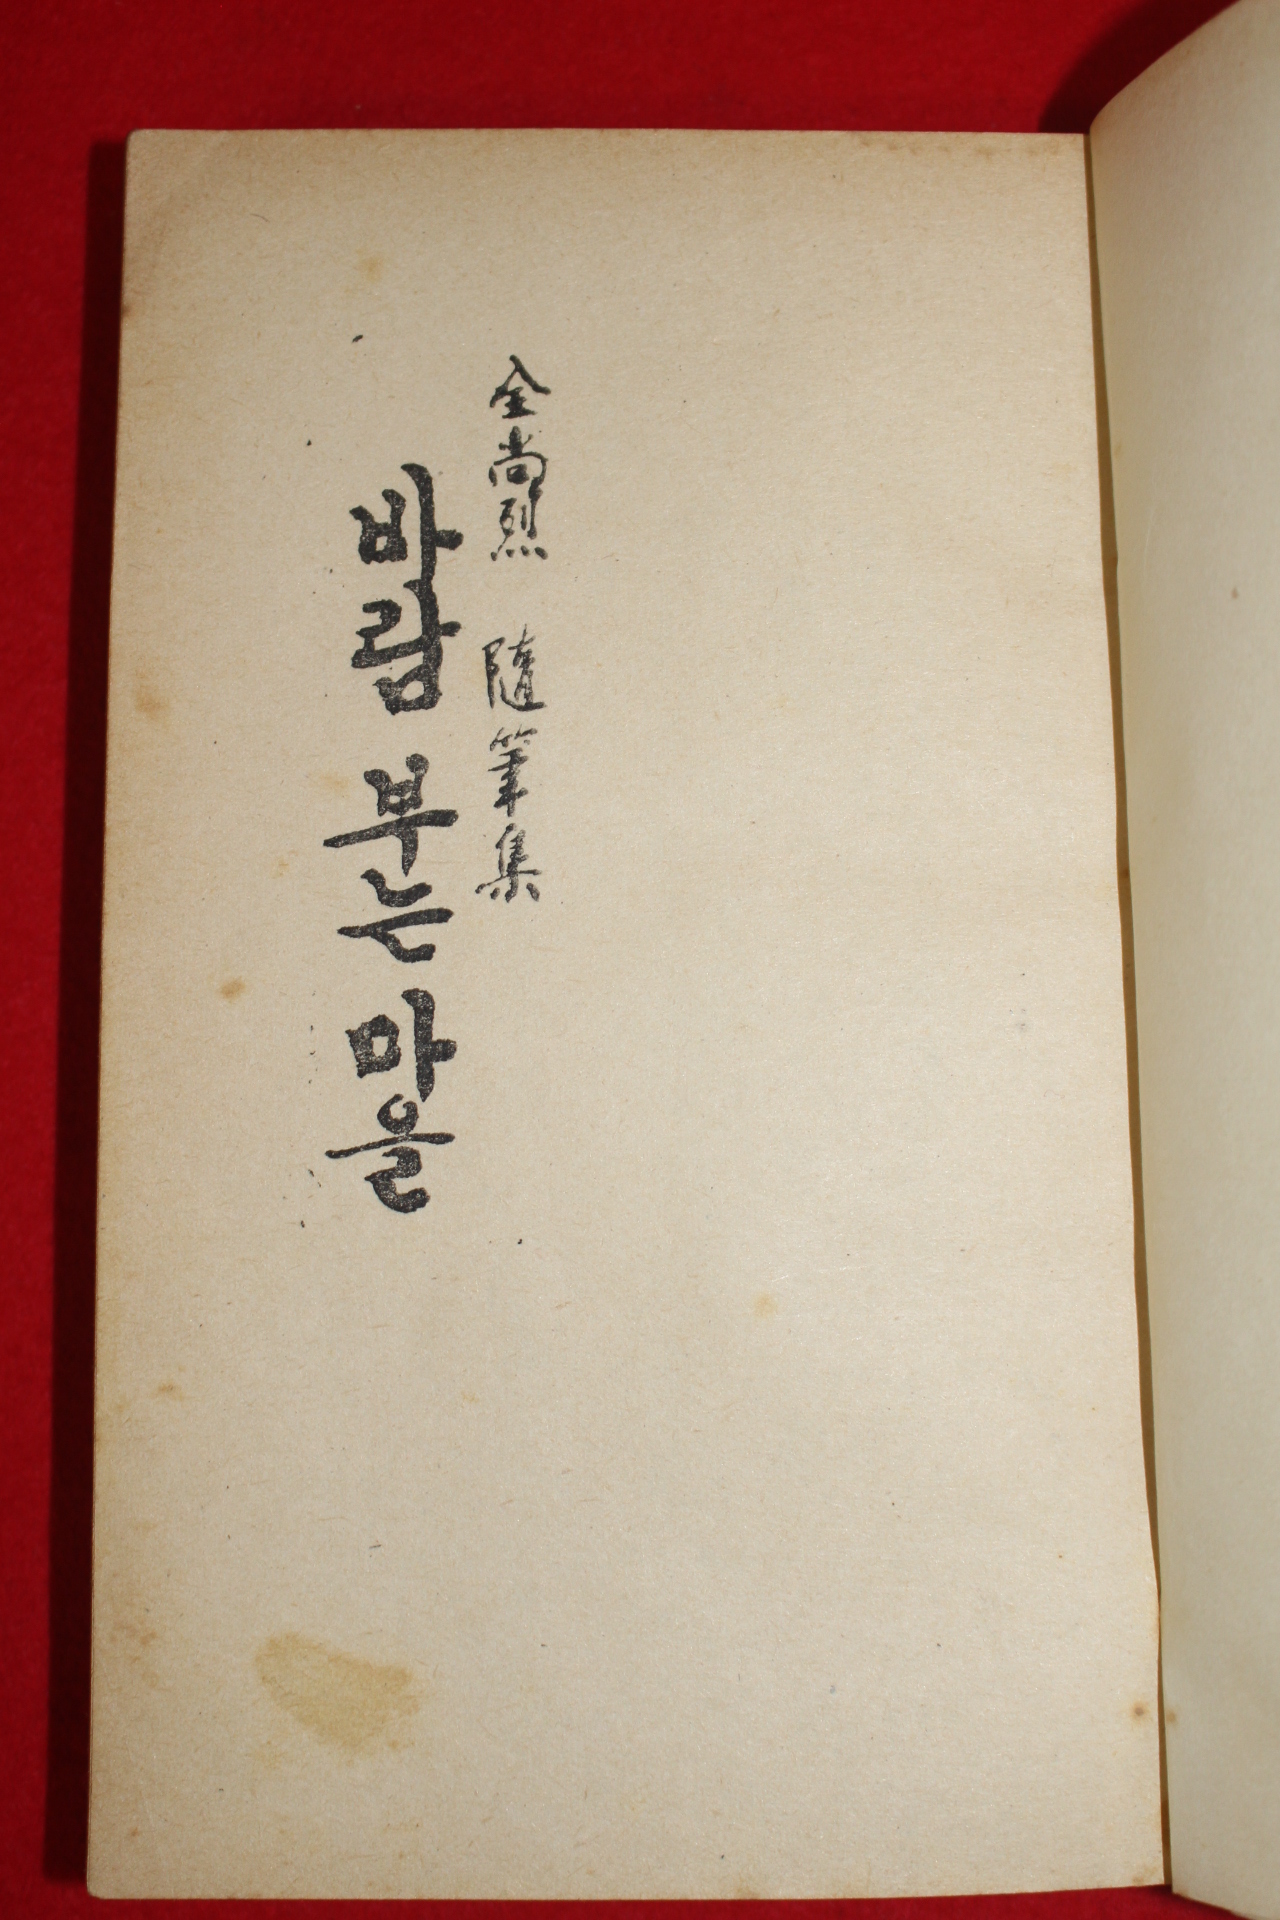 全尚烈 隨筆集
바람 부는 마을